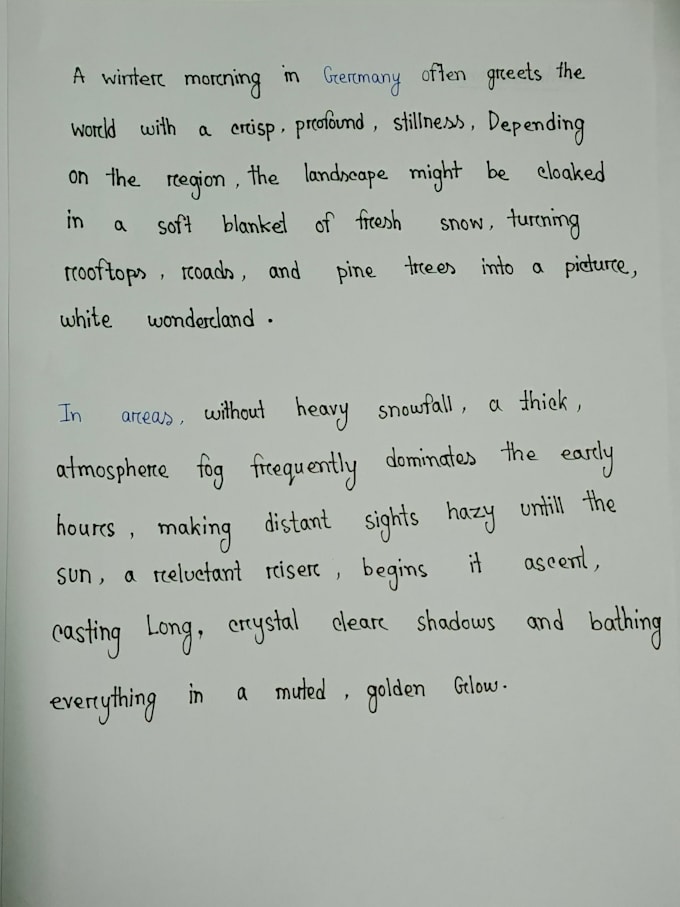 A winter morning in Germany often greets the
world with a crisp, profound, stillness, Depending
on the region, the landscape might be cloaked
in a soft blanket of fresh snow, turning
rooftops, roads, and pine trees into a picture,
white wonderland.
In areas, without heavy snowfall, a thick,
atmosphere fog frequently dominates the early
hours, making distant sights hazy untill the
sun, a reluctant riser, begins it ascent,
casting Long, crystal clear shadows and bathing
everything in a muted, golden Glow.